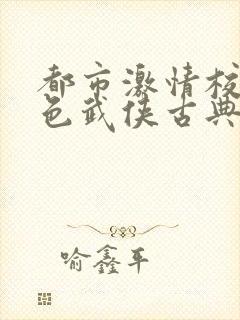 都市激情校
色武侠古典
喻鑫平